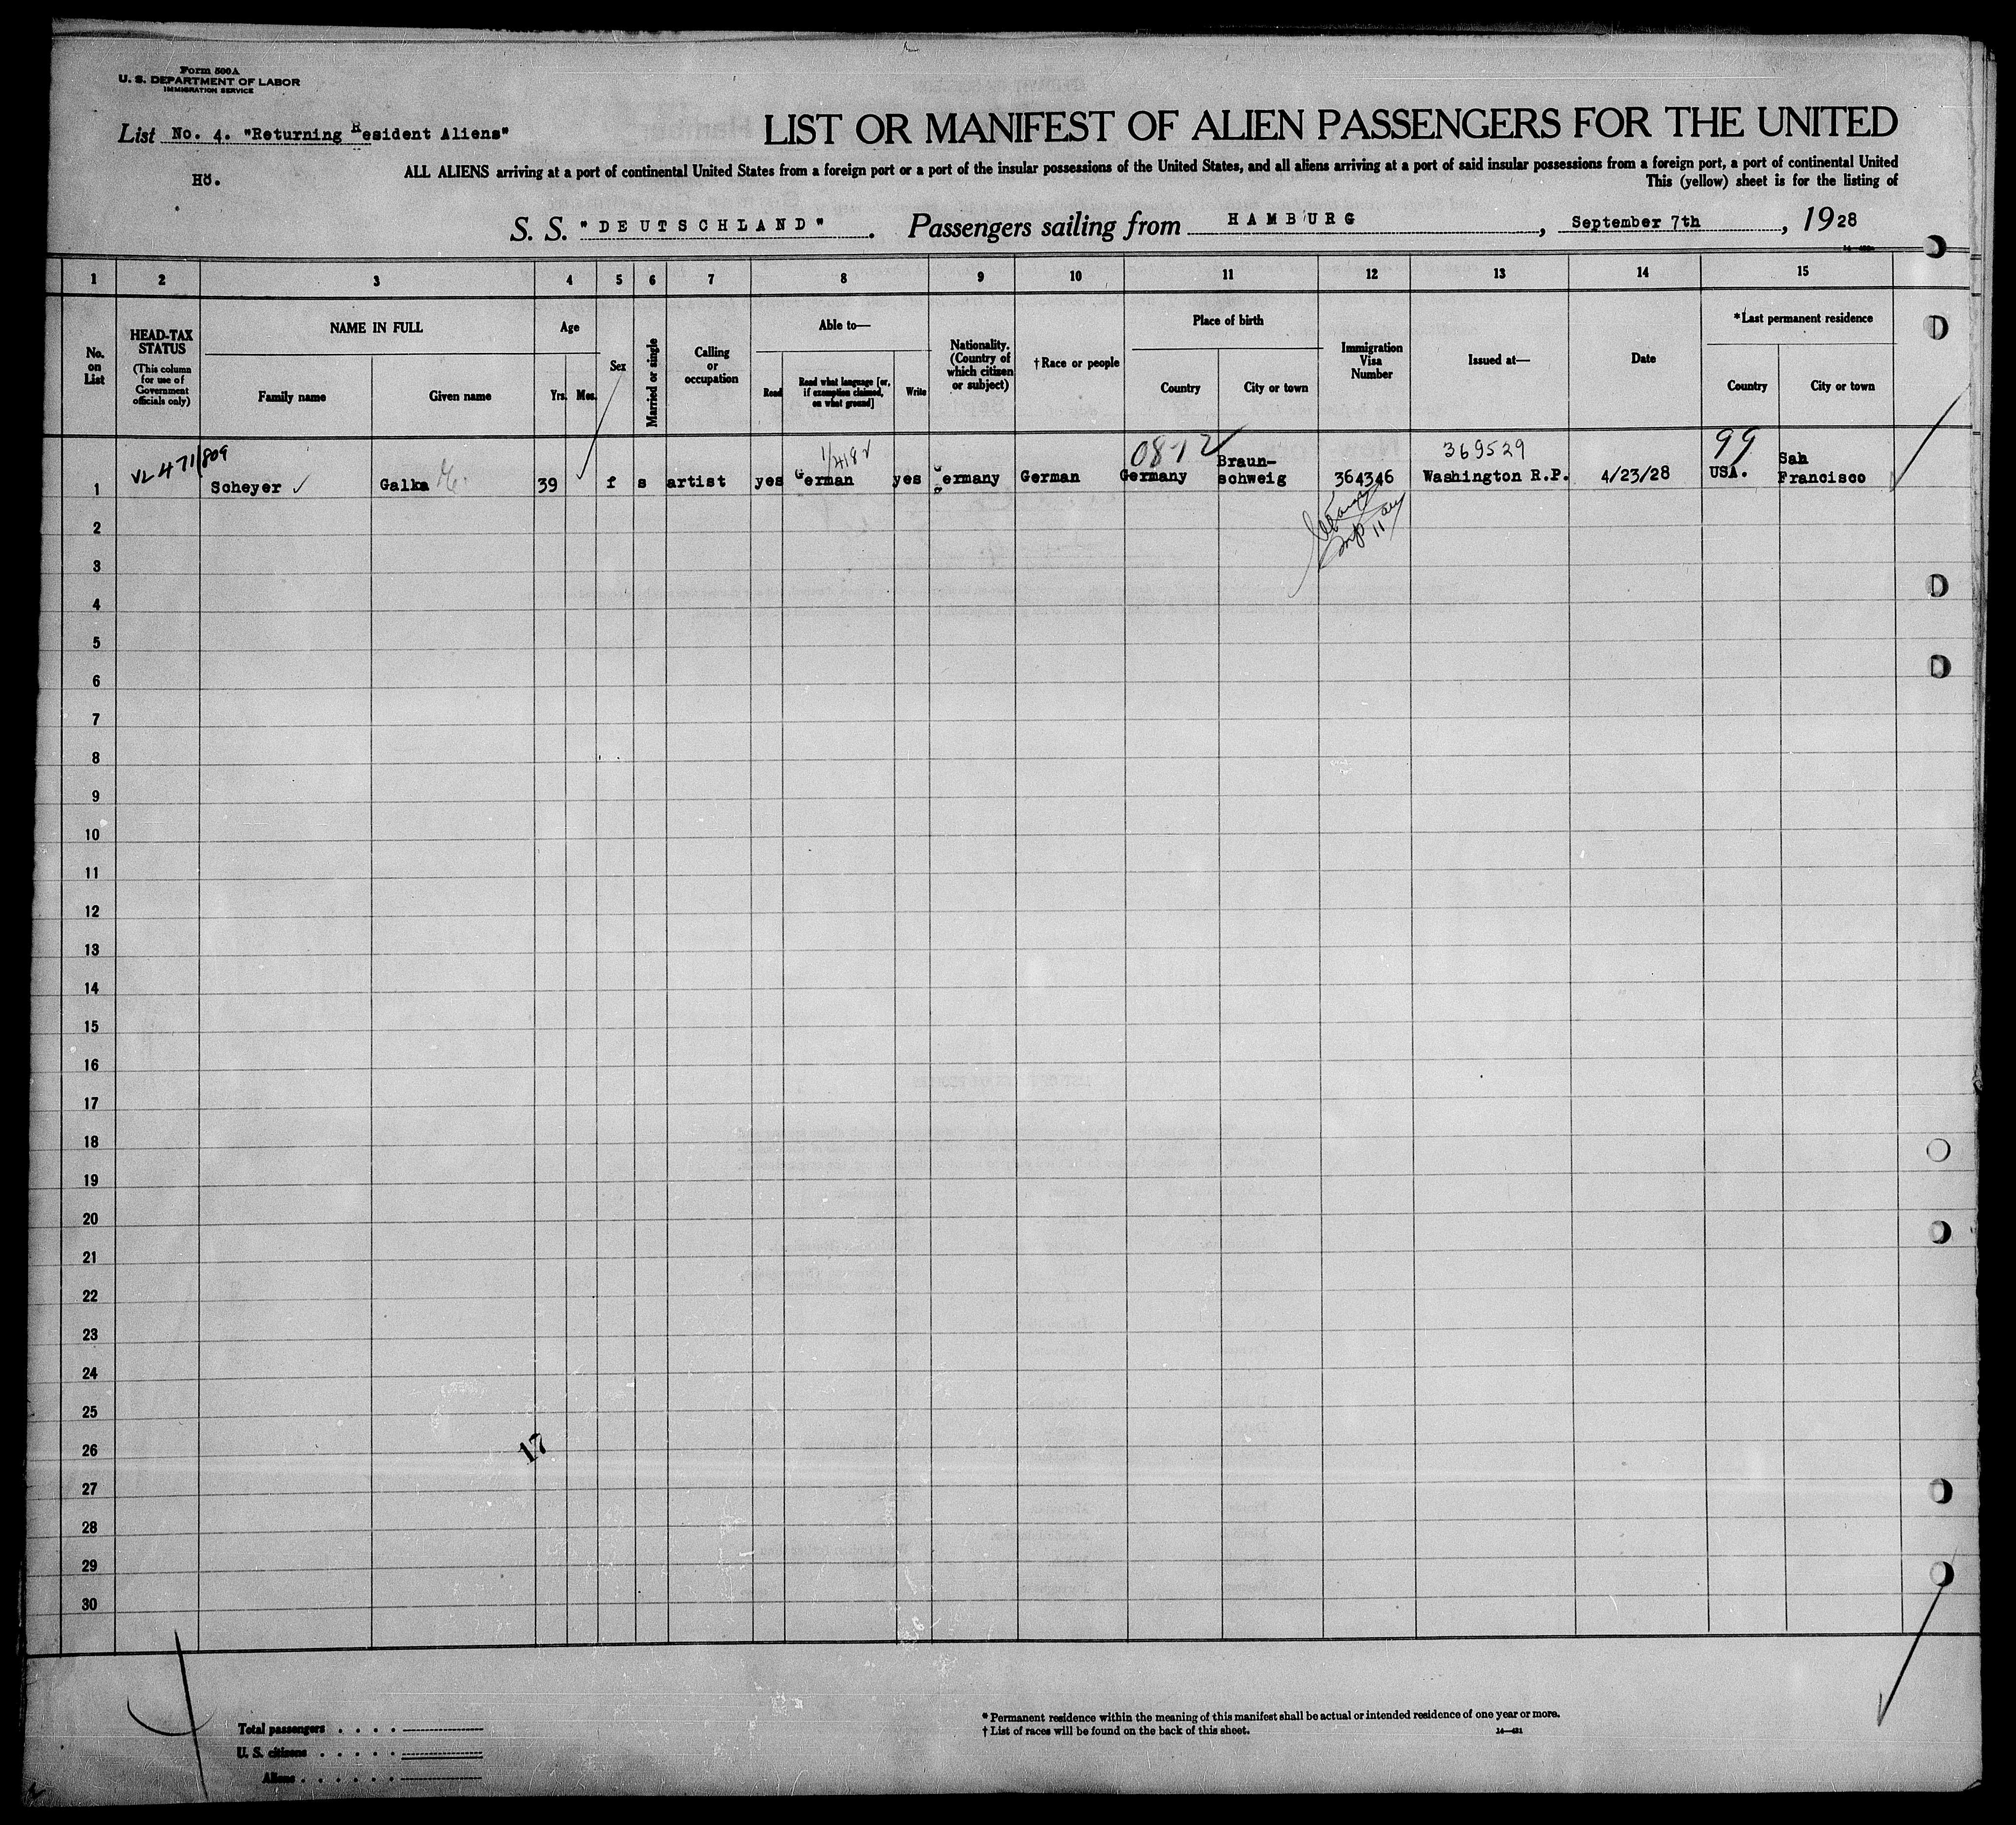 Form 500A
U. S. DEPARTMENT OF LABOR
IMMIGRATION SERVICE
List No. 4. "Returning Resident Aliens"
Hö.
LIST OR MANIFEST OF ALIEN PASSENGERS FOR THE UNITED
ALL ALIENS arriving at a port of continental United States from a foreign port or a port of the insular possessions of the United States, and all aliens arriving at a port of said insular possessions from a foreign port, a port of continental United
This (yellow) sheet is for the listing of
S. S. "DEUTSCHLAND". Passengers sailing from HAMBURG, September 7th, 1928
1 2 3 4 5 6 7 8 9 10 11 12 13 14 15
No. on List
HEAD-TAX STATUS
(This column for use of Government officials only)
NAME IN FULL
Family name
Given name
Age
Yrs. Mos.
Sex
Married or single
Calling or occupation
Able to—
Read
Read what language [or, if exemption claimed, on what ground]
Write
Nationality. (Country of which citizen or subject)
†Race or people
Place of birth
Country
City or town
Immigration Visa Number
Issued at—
Date
*Last permanent residence
Country
City or town
VL 471/809
1/4182
08-12
369529
99
1 Scheyer Galka E. 39 f s artist yes German yes Germany German Germany Braun-
schweig 364346 Washington R.P. 4/23/28 USA. San
Francisco
2
3
4
5
6
7
8
9
10
11
12
13
14
15
16
17
18
19
20
21
22
23
24
25
26
17
27
28
29
30
Total passengers . . . .
U. S. citizens . . . . .
Aliens . . . . . .
* Permanent residence within the meaning of this manifest shall be actual or intended residence of one year or more.
† List of races will be found on the back of this sheet.
14—431